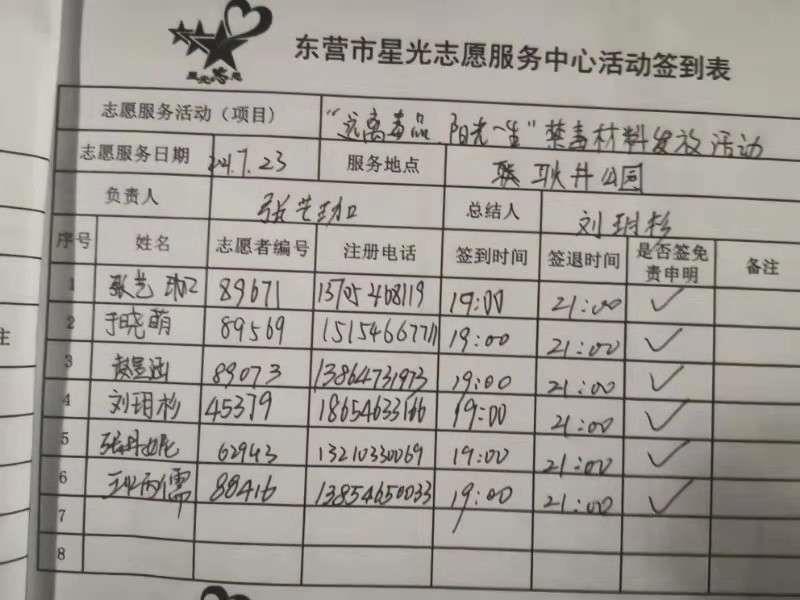 东营市星光志愿服务中心活动签到表
志愿服务活动（项目） “远离毒品 阳光一生”禁毒材料发放活动
志愿服务日期 2021.7.23 服务地点 耿井公园
负责人 张艺珈 总结人 刘玥杉
序号 姓名 志愿者编号 注册电话 签到时间 签退时间 是否签免责申明 备注
1 张艺珈 89671 13705468119 19:00 21:00 ✓
2 于晓萌 89569 15154667711 19:00 21:00 ✓
3 89073 13864731973 19:00 21:00 ✓
4 刘玥杉 45379 18654633166 19:00 21:00 ✓
5 62943 13210330069 19:00 21:00 ✓
6 88416 13854650033 19:00 21:00 ✓
7
8